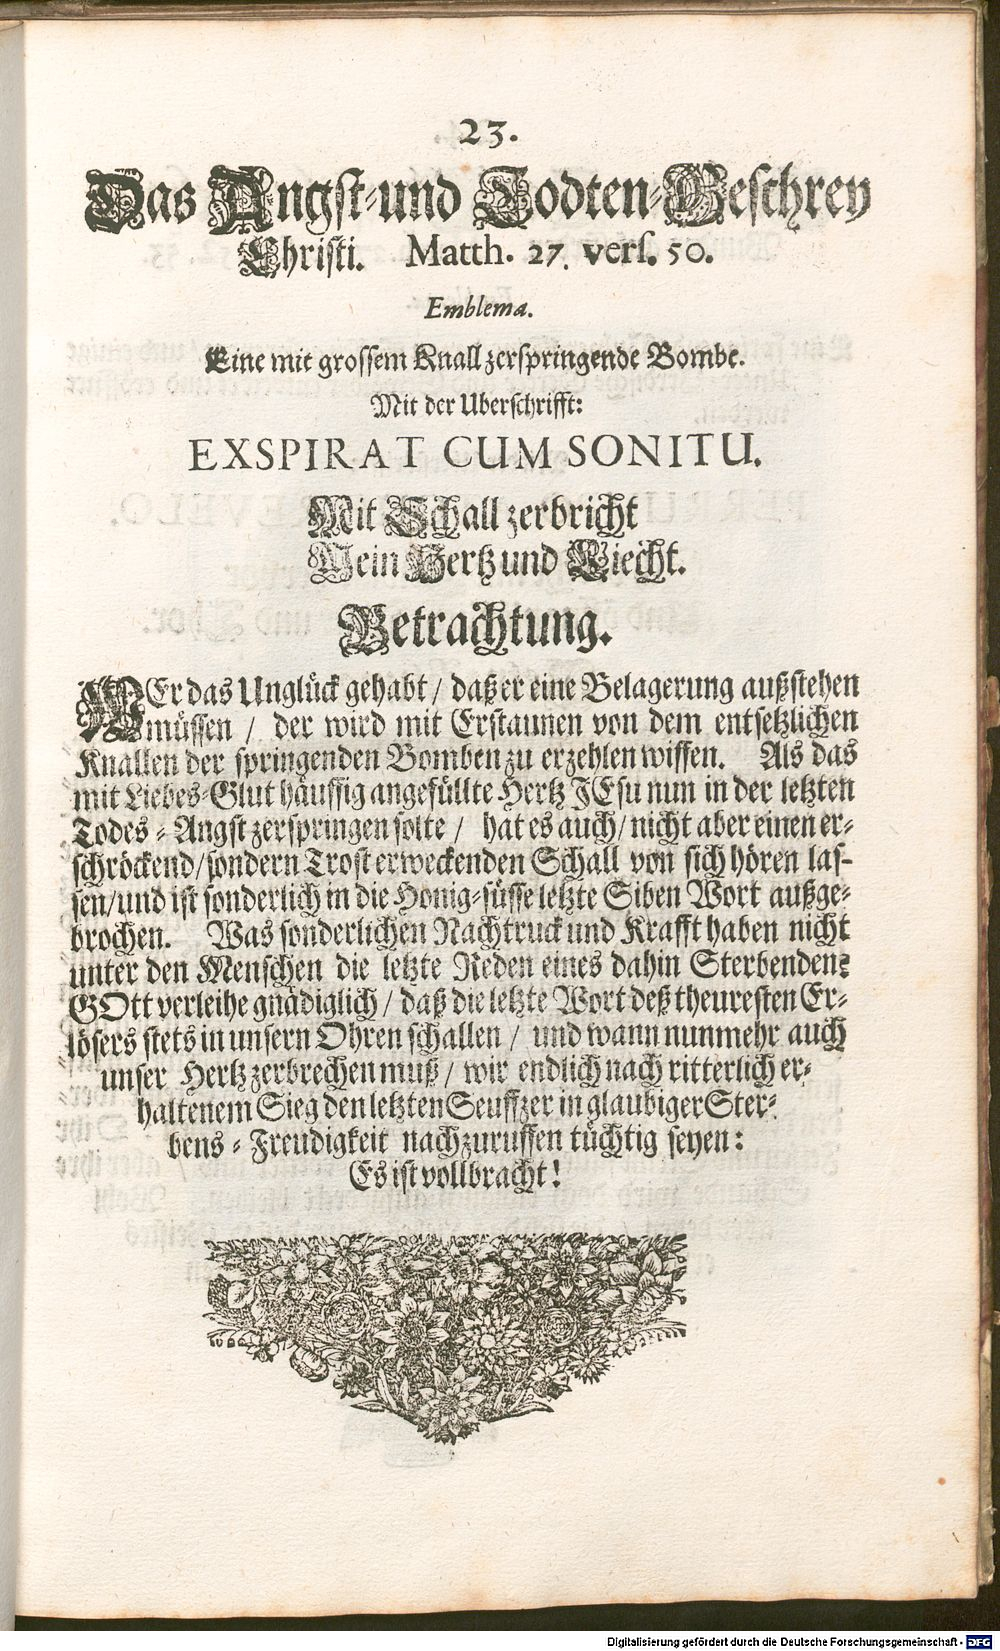 23.
Das Angst-und Todten-Geschrey
Christi. Matth. 27. vers. 50.
Emblema.
Eine mit grossem Knall zerspringende Bombe.
Mit der Uberschrifft:
EXSPIRAT CUM SONITU.
Mit Schall zerbricht
Mein Hertz und Liecht.
Betrachtung.
WEr das Unglück gehabt / daß er eine Belagerung außstehen
müssen / der wird mit Erstaunen von dem entsetzlichen
Knallen der springenden Bomben zu erzehlen wissen. Als das
mit Liebes-Glut häuffig angefüllte Hertz JEsu nun in der letzten
Todes-Angst zerspringen solte / hat es auch / nicht aber einen er-
schröckend / sondern Trost erweckenden Schall von sich hören las-
sen / und ist sonderlich in die Honig-süsse letzte Siben Wort außge-
brochen. Was sonderlichen Nachtruck und Krafft haben nicht
unter den Menschen die letzte Reden eines dahin Sterbenden?
GOtt verleihe gnädiglich / daß die letzte Wort deß theuresten Er-
lösers stets in unsern Ohren schallen / und wann nunmehr auch
unser Hertz zerbrechen muß / wir endlich nach ritterlich er-
haltenem Sieg den letzten Seuffzer in glaubiger Ster-
bens-Freudigkeit nachzuruffen tüchtig seyen:
Es ist vollbracht!
Digitalisierung gefördert durch die Deutsche Forschungsgemeinschaft - DFG